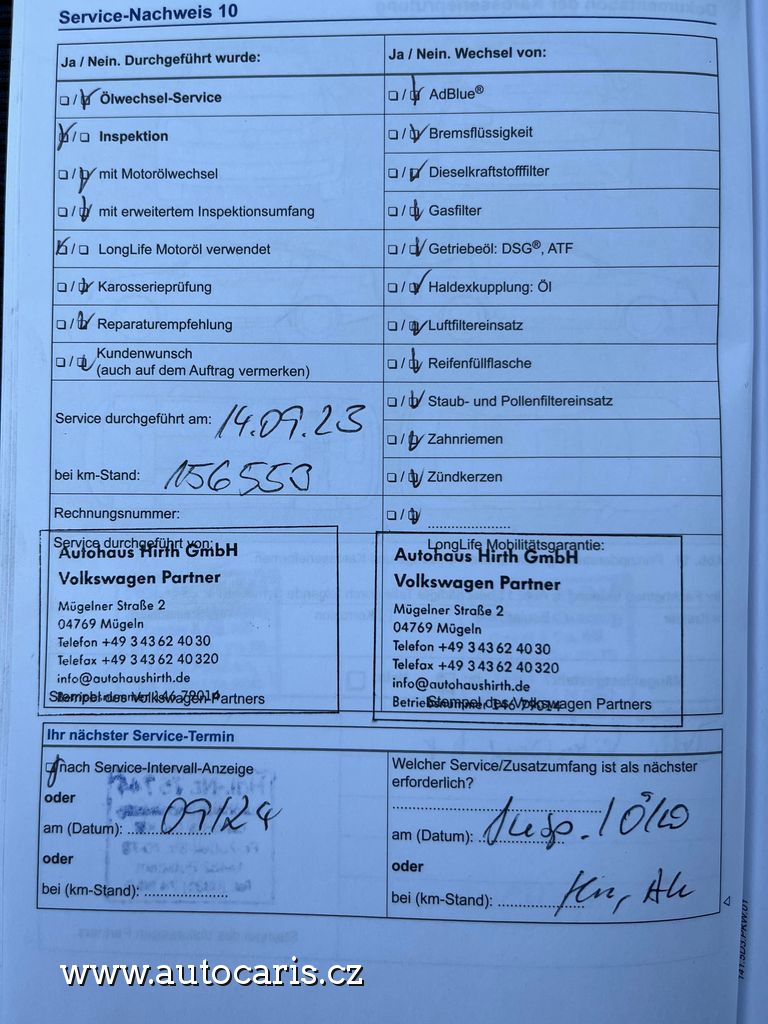 Service-Nachweis 10
Ja / Nein. Durchgeführt wurde:
Ja / Nein. Wechsel von:
Ölwechsel-Service
AdBlue®
Inspektion
Bremsflüssigkeit
mit Motorölwechsel
Dieselkraftstofffilter
mit erweitertem Inspektionsumfang
Gasfilter
LongLife Motoröl verwendet
Getriebeöl: DSG®, ATF
Karosserieprüfung
Haldexkupplung: Öl
Reparaturempfehlung
Luftfiltereinsatz
Kundenwunsch
(auch auf dem Auftrag vermerken)
Reifenfüllflasche
Staub- und Pollenfiltereinsatz
Service durchgeführt am: 14.09.23
Zahnriemen
bei km-Stand: 156553
Zündkerzen
Rechnungsnummer:
Service durchgeführt von:
Autohaus Hirth GmbH
Volkswagen Partner
Mügelner Straße 2
04769 Mügeln
Telefon +49 3 43 62 40 30
Telefax +49 3 43 62 40 320
info@autohaushirth.de
Betriebsnummer 146 79014
Stempel des Volkswagen Partners
LongLife Mobilitätsgarantie:
Autohaus Hirth GmbH
Volkswagen Partner
Mügelner Straße 2
04769 Mügeln
Telefon +49 3 43 62 40 30
Telefax +49 3 43 62 40 320
info@autohaushirth.de
Betriebsnummer 146 79014
Stempel des Volkswagen Partners
Ihr nächster Service-Termin
nach Service-Intervall-Anzeige
oder
am (Datum): 09/24
oder
bei (km-Stand):
Welcher Service/Zusatzumfang ist als nächster
erforderlich?
am (Datum): Insp. / ÖlW
oder
bei (km-Stand):
www.autocaris.cz